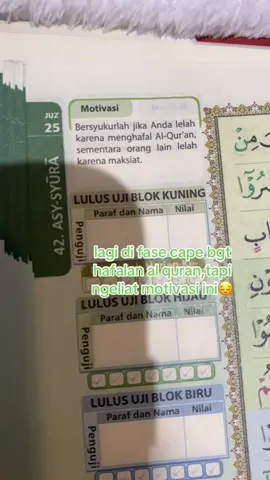 JUZ
25
42. ASY-SYŪRĀ
Motivasi
Bersyukurlah jika Anda lelah
karena menghafal Al-Qur'an,
sementara orang lain lelah
karena maksiat.
LULUS UJI BLOK KUNING
Paraf dan Nama Nilai
Penguji
lagi di fase cape bgt
hafalan al quran,tapi
ngeliat motivasi ini😔
LULUS UJI BLOK HIJAU
Paraf dan Nama Nilai
Penguji
LULUS UJI BLOK BIRU
Paraf dan Nama Nilai
Penguji